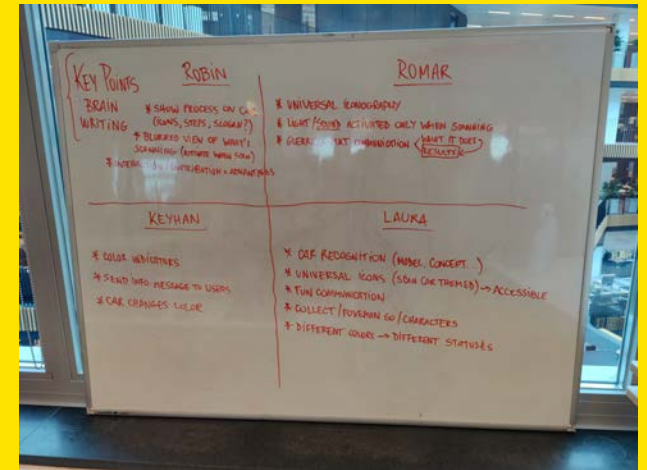 KEY POINTS
BRAIN
WRITING
ROBIN
* SHOW PROCESS ON CAR
(ICONS, STEPS, SLOGAN?)
* BLURRED VIEW OF WHAT'S
SCANNING (ACTIVATE WHEN SCAN)
* INTERACTION / CONTRIBUTION =
ROMAR
* UNIVERSAL ICONOGRAPHY
* LIGHT/SOUND ACTIVATED ONLY WHEN SCANNING
* GUERRILLA ART COMMUNICATION
WHAT IT DOES
RESULTS
KEYHAN
* COLOR INDICATORS
* SEND INFO MESSAGE TO USERS
* CAR CHANGES COLOR
LAURA
* CAR RECOGNITION (MODEL, CONCEPT...)
* UNIVERSAL ICONS (SCAN CAR THEMED) → ACCESSIBLE
* FUN COMMUNICATION
* COLLECT / POKEMON GO / CHARACTERS
* DIFFERENT COLORS → DIFFERENT STATUSES